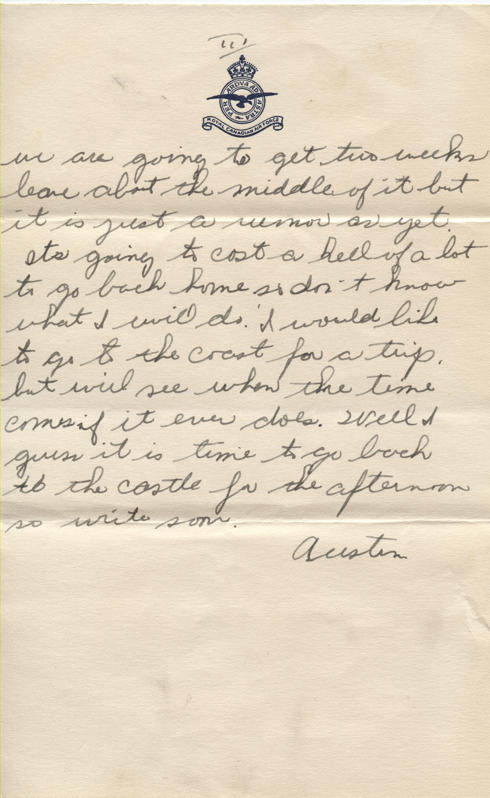 III
PER ARDUA AD ASTRA
ROYAL CANADIAN AIR FORCE
we are going to get two weeks
leave about the middle of it but
it is just a rumor as yet.
Its going to cost a hell of a lot
to go back home so don't know
what I will do. I would like
to go to the coast for a trip.
but will see when the time
comes if it ever does. Well I
guess it is time to go back
to the castle for the afternoon
so write soon.
Austin